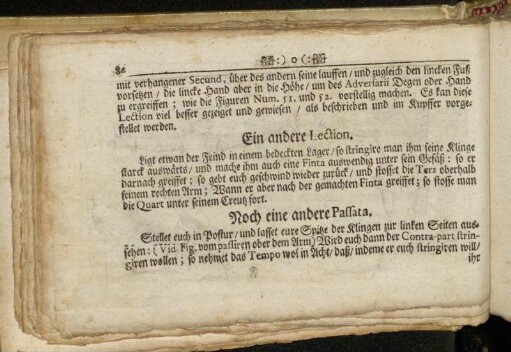 82 :) o (:
mit verhangener Secund, über des andern seine lauffen/ und zugleich den lincken Fuß
vorsetzen/ die lincke Hand aber in die Höhe/ um des Adversarii Degen oder Hand
zu ergreiffen; wie die Figuren Num. 51. und 52. vorstellig machen. Es kan diese
Lection viel besser gezeiget und gewiesen/ als beschrieben und im Kupffer vorge-
stellet werden.
Ein andere Lection.
Ligt etwan der Feind in einem bedeckten Lager/ so stringire man ihm seine Klinge
starck auswärts/ und mache ihm auch eine Finta auswendig unter sein Gefäß: so er
darnach greiffet; so gebt euch geschwind wieder zurück/ und stosset die Terz oberhalb
seinem rechten Arm; Wann er aber nach der gemachten Finta greiffet; so stosse man
die Quart unter seinem Creutz fort.
Noch eine andere Passata.
Stellet euch in Postur/ und lasset eure Spitze der Klingen zur lincken Seiten aus-
sehen: (Vid. Fig. vom passiren ober dem Arm) Wird euch dann der Contra-part strin-
giren wollen; so nehmet das Tempo wol in Acht/ daß/ indeme er euch stringiren will/
ihr